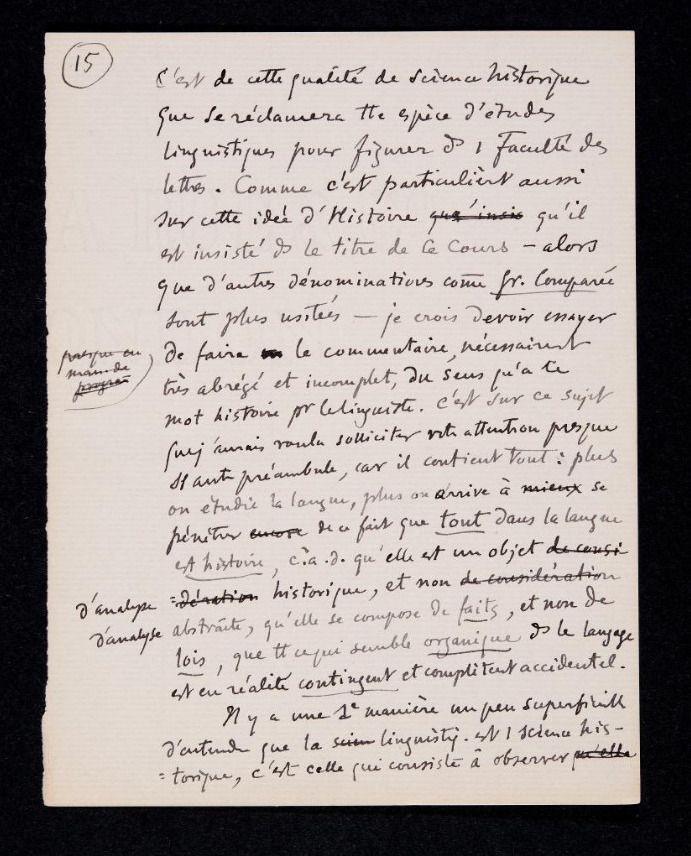 15
C'est de cette qualité de science historique
que se réclamera tte espèce d'études
linguistiques pour figurer ds 1 Faculté des
lettres. Comme c'est particulièrt aussi
sur cette idée d'Histoire qu'insis qu'il
est insisté ds le titre de ce cours — alors
que d'autres dénominations come Gr. Comparée
sont plus usitées — je crois devoir essayer
de faire le commentaire, nécessairemt
très abrégé et incomplet, du sens qu'a le
mot histoire pr le linguiste. C'est sur ce sujet
que j'aurais voulu solliciter votre attention presque
presque en
manière de
progra
ss autre préambule, car il contient tout : plus
on étudie la langue, plus on arrive à mieux se
pénétrer encore de ce fait que tout dans la langue
est histoire, c.à.d. qu'elle est un objet de consi
=dération historique, et non de considération
d'analyse
d'analyse
abstraite, qu'elle se compose de faits, et non de
lois, que tt ce qui semble organique ds le langage
est en réalité contingent et complètemt accidentel.
Il y a une 1e manière un peu superficielle
d'entendre que la scien linguistiq. est 1 science his-
=torique, c'est celle qui consiste à observer qu'elle